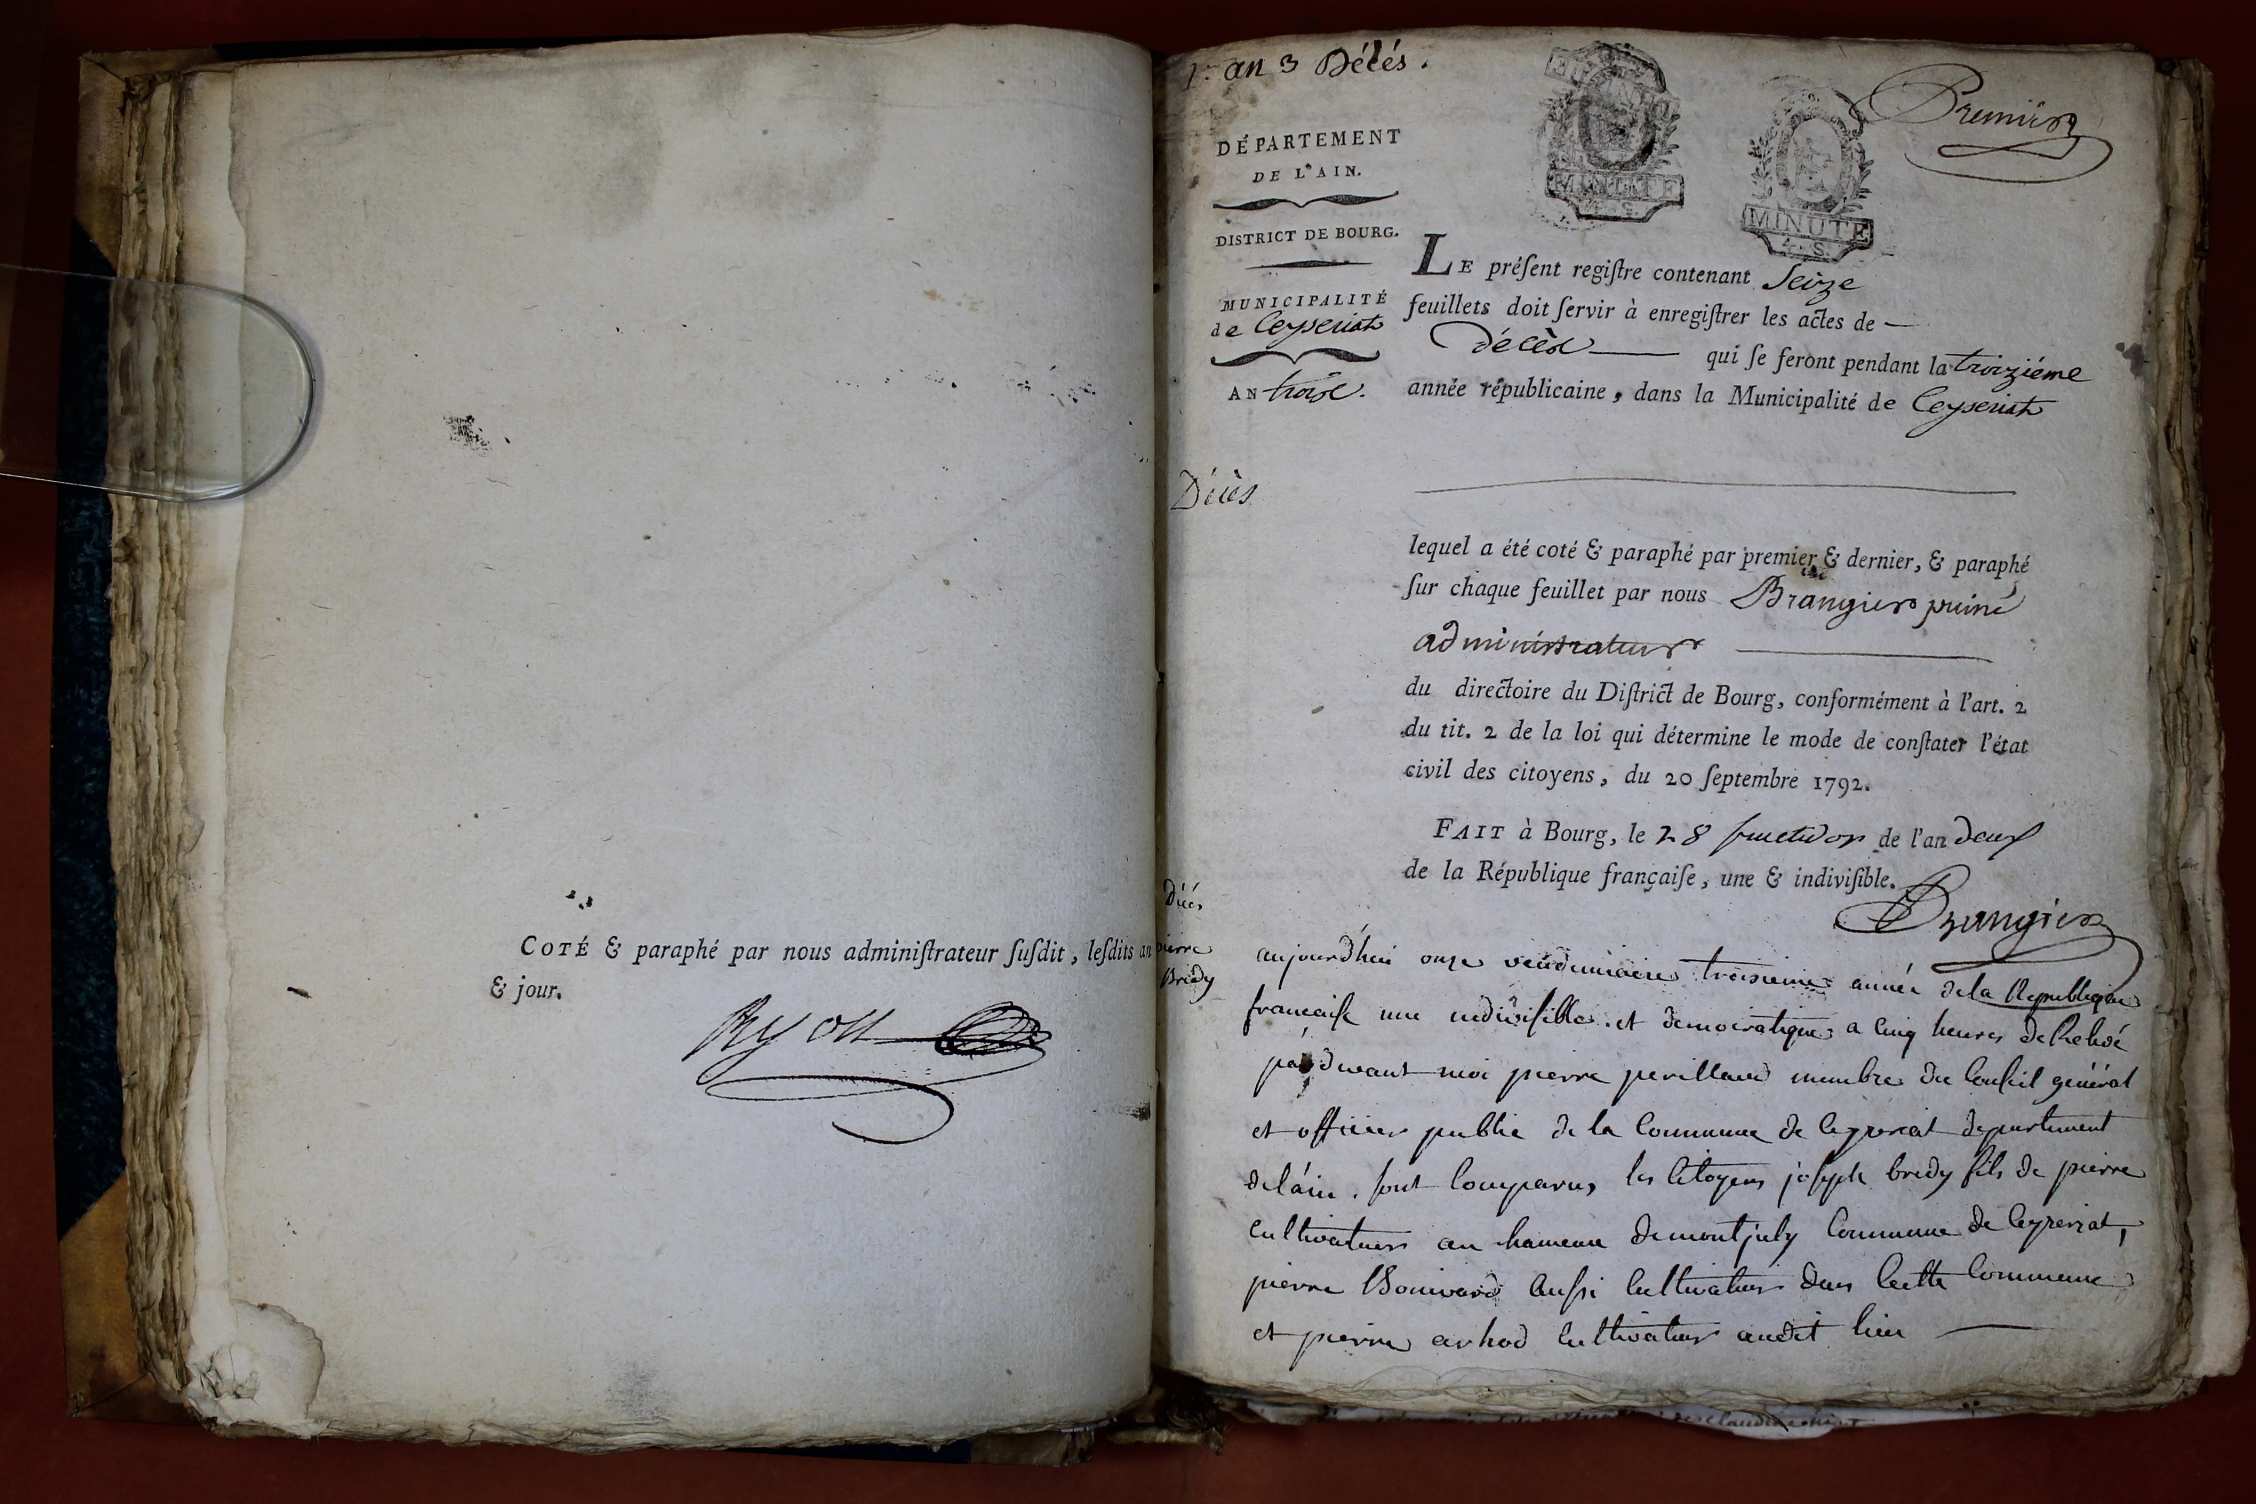 COTÉ & paraphé par nous adminiſtrateur ſuſdit, leſdits an
& jour.
1er an 3 Décés.
Premier
DÉPARTEMENT
DE L'AIN.
DISTRICT DE BOURG.
MUNICIPALITÉ
de Ceyseriat
AN trois.
MINUTE
MINUTE
4. S.
LE préſent regiſtre contenant Seize
feuillets doit ſervir à enregiſtrer les actes de —
décès — qui ſe feront pendant la troizième
année républicaine, dans la Municipalité de Ceyseriat
Décès
lequel a été coté & paraphé par premier & dernier, & paraphé
ſur chaque feuillet par nous Brangier puiné
administrateur
du directoire du Diſtrict de Bourg, conformément à l'art. 2
du tit. 2 de la loi qui détermine le mode de conſtater l'état
civil des citoyens, du 20 ſeptembre 1792.
FAIT à Bourg, le 28 fructidor de l'an deux
de la République françaiſe, une & indiviſible.
Brangier
Décés
pierre
Bredy
aujourd'hui onze vendemiaire troisieme année de la Republique
francaise une indivisible et democratique a cinq heures de Relevé
pardevant moi pierre perillaud membre du Conseil général
et officier public de la Commune de Ceyzeriat departement
de l'ain, sont Comparus les Citoyens joseph bredy fils de pierre
Cultivateur au hameau de montjuly Commune de Ceyzeriat,
pierre Bonivard aussi Cultivateur dans Cette Commune
et pierre Cultivateur audit lieu —